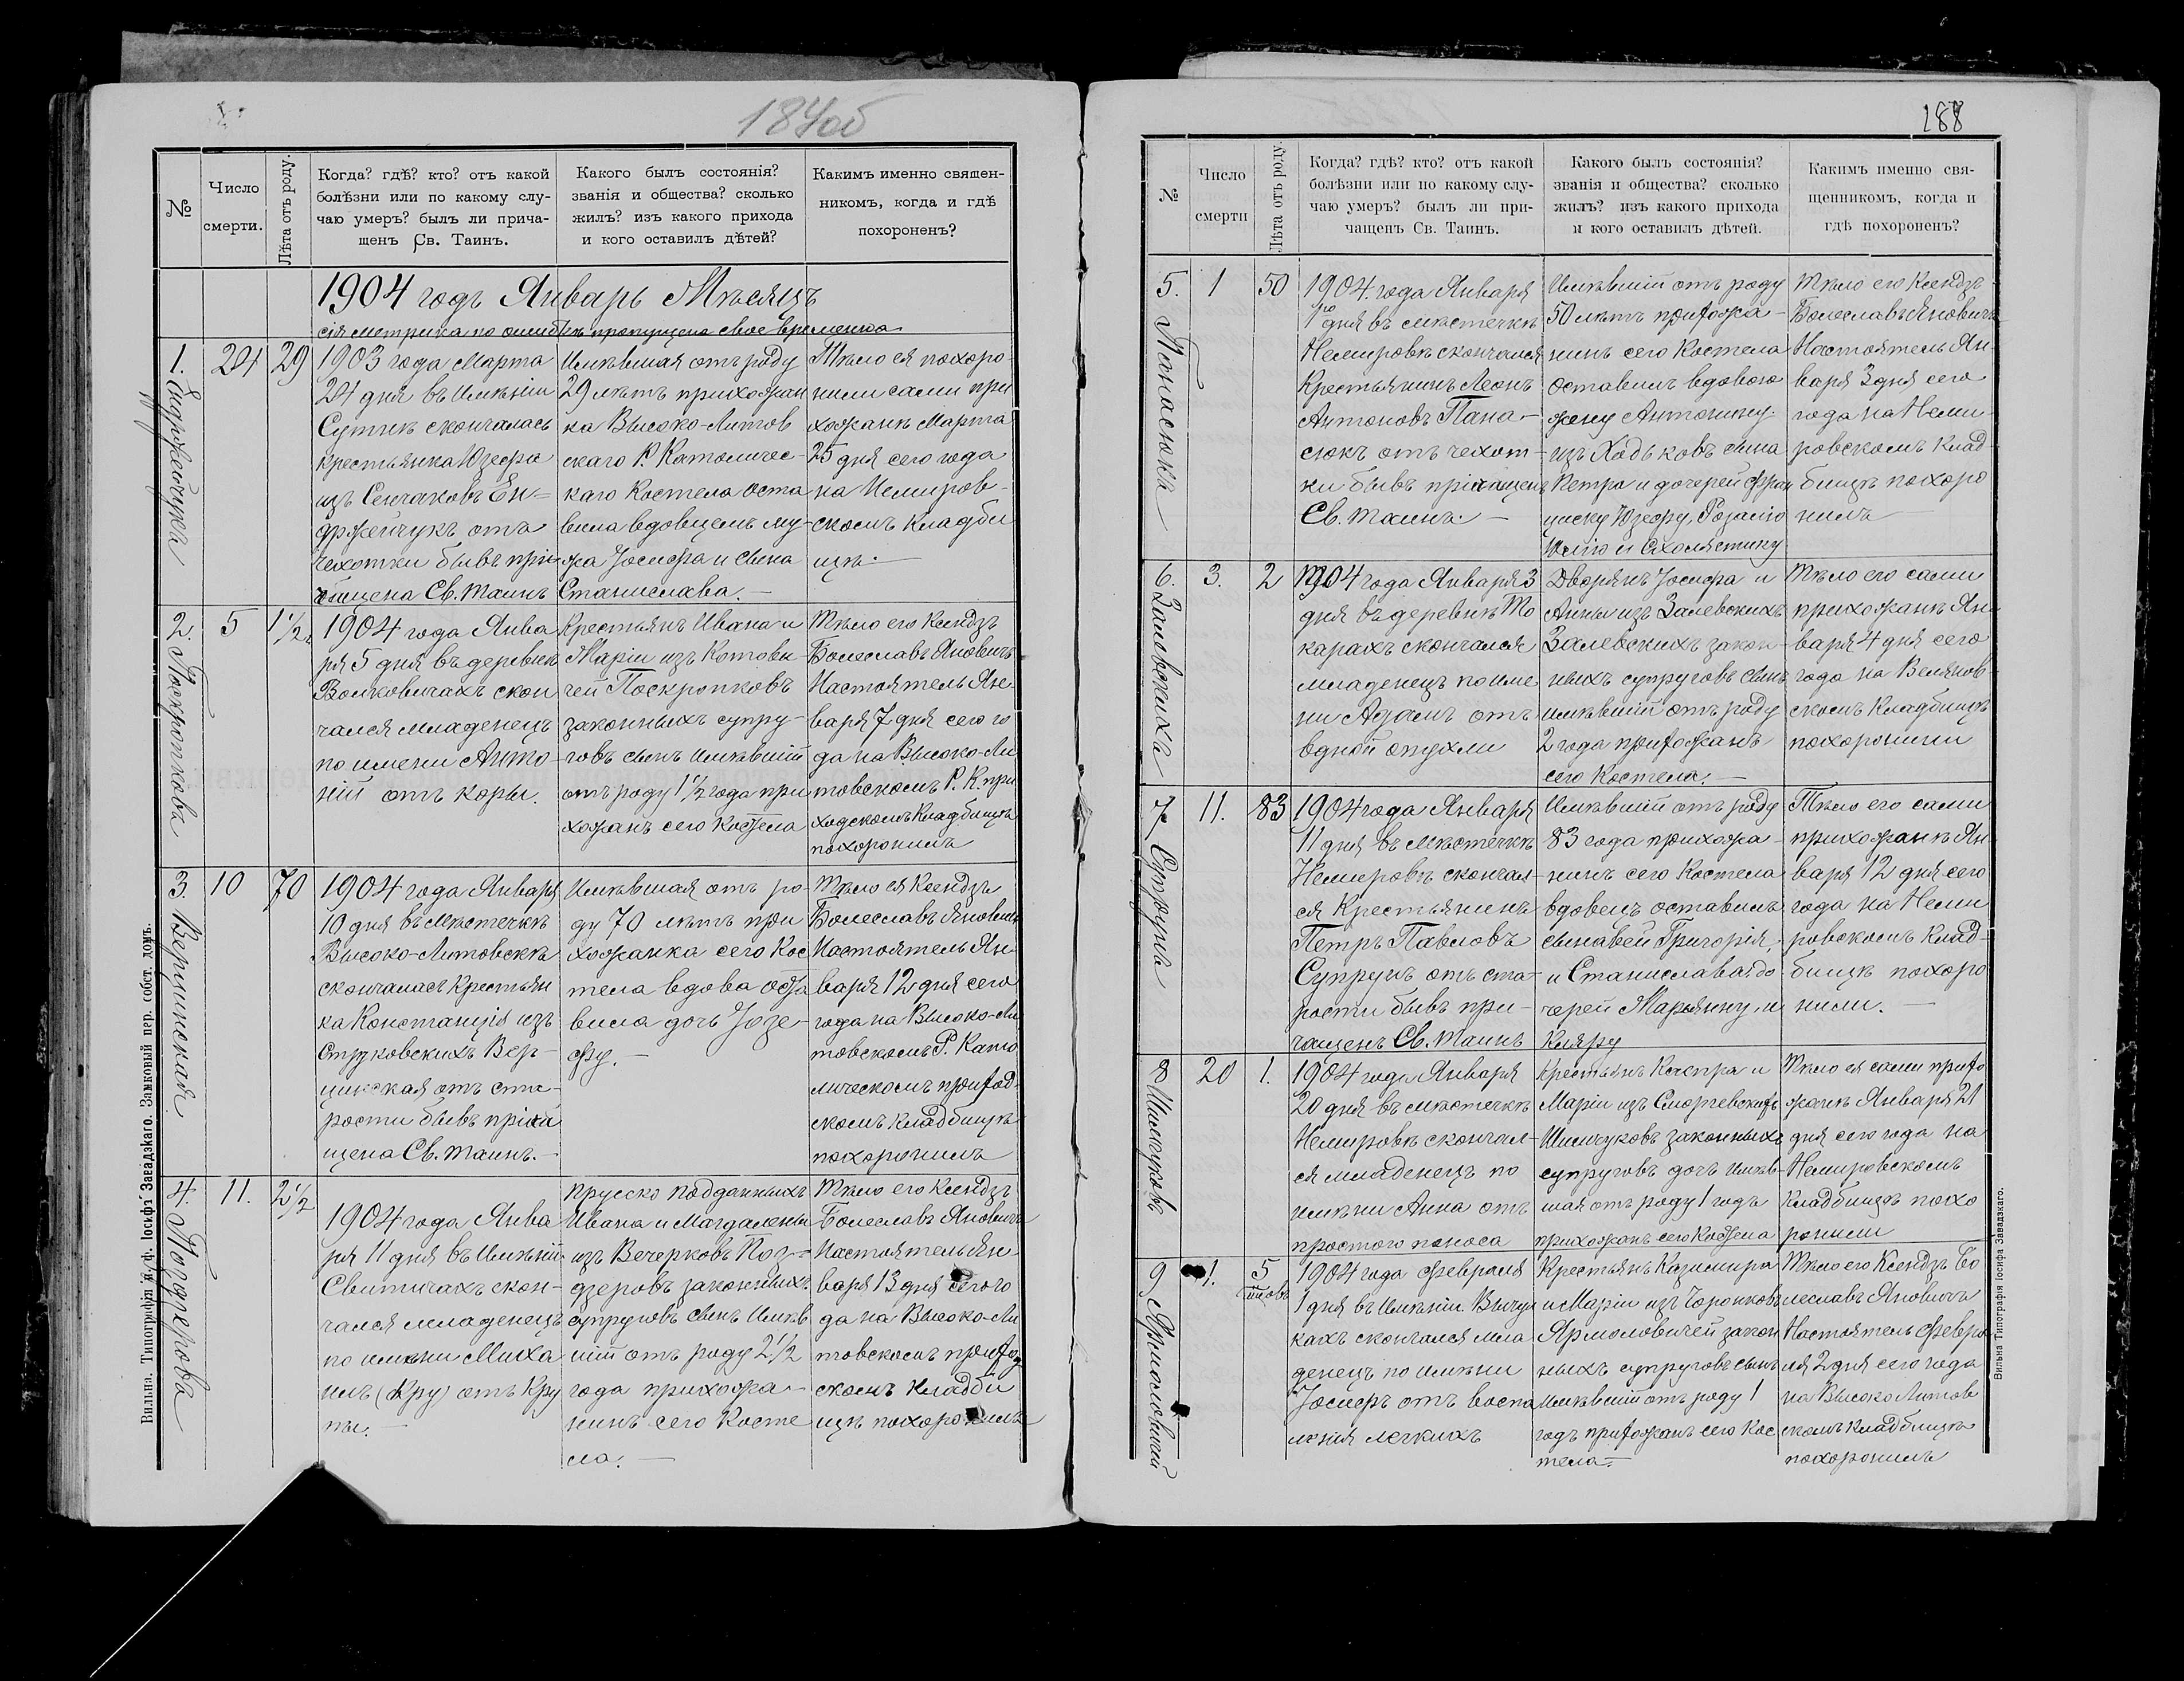 184об
№
Число
смерти.
Лѣта отъ роду.
Когда? гдѣ? кто? отъ какой
болѣзни или по какому слу-
чаю умеръ? былъ ли прича-
щенъ Св. Таинъ.
Какого былъ состоянія?
званія и общества? сколько
жилъ? изъ какого прихода
и кого оставилъ дѣтей?
Какимъ именно священ-
никомъ, когда и гдѣ
похороненъ?
1904 годъ Январь Мѣсяцъ
сія метрика по ошибкѣ пропущена свое временно
1.
24
29
1903 года Марта
24 дня въ имѣніи
Сутикъ скончалась
крестьянка Юзефа
изъ Сенчаковъ Ен=
држейчукъ отъ
чехотки бывъ прi-
общена Св. Таинъ
Имѣвшая отъ роду
29 лѣтъ прихожан
ка Высоко-Литов
скаго Р. Католичес-
каго Костела оста
вила вдовцемъ му-
жа Іосифа и сына
Станислава.—
Тѣло ея похоро-
нили сами при
хожанѣ Марта
25 дня сего года
на Немиров-
скомъ кладби
щѣ.—
2. Поскропкова
5
1½
1904 года Янва
ря 5 дня въ деревнѣ
Волковичахъ скон
чался младенецъ
по имени Анто-
ній отъ коры.
Крестьянъ Ивана и
Маріи изъ Котови-
чей Поскропковъ
законныхъ супру-
говъ сынъ имѣвшій
отъ роду 1½ года при
хожанъ сего костела
Тѣло его Ксендзъ
Болеславъ Яновичъ
Настоятель Ян-
варя 7 дня сего го
да на Высоко-Ли
товскомъ Р. К. при
ходскомъ кладбищѣ
похоронилъ
3.
10
70
1904 года Января
10 дня въ мѣстечкѣ
Высоко-Литовскѣ
скончалась крестьян
ка Констанція изъ
Струковскихъ Вер-
цинская отъ ста-
рости бывъ пріча
щена Св. Таинъ.—
Имѣвшая отъ ро-
ду 70 лѣтъ при
хожанка сего Кос
тела вдова оста
вила дочь Юзе-
фу.—
Тѣло ея Ксендзъ
Болеславъ Яновичъ
Настоятель Ян-
варя 12 дня сего
года на Высоко-Ли
товскомъ Р. Като
лическомъ приход
скомъ кладбищѣ
похоронилъ
4. Поздзерова
11.
2½
1904 года Янва
ря 11 дня въ имѣніи
Свитичахъ скон-
чался младенецъ
по имѣни Миха
илъ (Кру) отъ Кру
пы.—
прусско подданныхъ
Ивана и Магдалены
изъ Вечерковъ Поз-
дзеровъ законныхъ
супруговъ сынъ имѣв
шій отъ роду 2½
года прихожа-
нинъ сего косте
ла.—
Тѣло его Ксендзъ
Болеславъ Яновичъ
Настоятель Ян-
варя 13 дня сего го
да на Высоко-Ли
товскомъ приход
скомъ кладби
щѣ похоронилъ
Вильна. Типографія п. ф. Іосифъ Завадзкаго. Замковый пер. собст. домъ.
188
№
Число
смерти
Лѣта отъ роду.
Когда? гдѣ? кто? отъ какой
болѣзни или по какому слу-
чаю умеръ? былъ ли при-
чащенъ Св. Таинъ.
Какого былъ состоянія?
званія и общества? сколько
жилъ? изъ какого прихода
и кого оставилъ дѣтей.
Какимъ именно свя-
щенникомъ, когда и
гдѣ похороненъ?
5. Панасюка
1
50
1904. года Января
1го дня въ мѣстечкѣ
Немировѣ скончался
Крестьянинъ Леонъ
Антоновъ Пана-
сюкъ отъ чехот-
ки бывъ прічащенъ
Св. Таинъ.—
Имѣвшій отъ роду
50 лѣтъ прихожа-
нинъ сего Костела
Оставилъ вдовою
жену Антонину
изъ Ходьковъ сына
Петра и дочерей Фран
циску Юзефу, Розалію
Юлію и Схолястику
Тѣло его Ксендзъ
Болеславъ Яновичъ
Настоятель Ян-
варя 3 дня сего
года на Неми-
ровскомъ клад-
бищѣ похоро
нилъ
6. Залевскиха
3.
2
1904 года Января 3
дня въ деревнѣ То
карахъ скончался
младенецъ по име
ни Адамъ отъ
вдной опухли
Дворянъ Іосифа и
Анны изъ Залевскихъ
Залевскихъ закон-
ныхъ супруговъ сынъ
имѣвшій отъ роду
2 года прихожанъ
сего Костела.—
Тѣло его сами
прихожанѣ Ян
варя 4 дня сего
года на Велянов-
скомъ Кладбищѣ
похоронили
7. Супруна
11.
83
1904 года Января
11 дня въ мѣстечкѣ
Немировѣ скончал-
ся Крестьянинъ
Петръ Павловъ
Супрунъ отъ ста-
рости бывъ при-
чащенъ Св. Таинъ
Имѣвшій отъ роду
83 года прихожа-
нинъ сего Костела
вдовецъ оставилъ
сынавей Григорія,
и Станислава до
черей Марьянну, и
Кляру
Тѣло его сами
прихожанѣ Ян-
варя 12 дня сего
года на Неми
ровскомъ клад-
бищѣ похоро
нили.—
8 Шимчуковъ
20
1.
1904 года Января
20 дня въ мѣстечкѣ
Немировѣ скончал-
ся младенецъ по
имѣни Анна отъ
простого поноса
Крестьянъ Каспра и
Маріи изъ Сморжевскихъ
Шимчуковъ законныхъ
супруговъ дочь имѣв-
шая отъ роду 1 годъ
прихожанъ сего Костела
Тѣло ея сами прихо
жанѣ Января 21
дня сего года на
Немировскомъ
Кладбищѣ похо
ронили
9 Ярмоловичей
1.
5
1904 года Февраля
1 дня въ имѣніи Вычул
кахъ скончался мла
денецъ по имѣни
Іосифъ отъ воспа
ленія легкихъ
Крестьянъ Казимира
и Маріи изъ Торопковъ
Ярмоловичей закон
ныхъ супруговъ сынъ
имѣвшій отъ роду 1
годъ прихожанъ сего Кос
тела.—
Тѣло его Ксендзъ Бо
леславъ Яновичъ
Настоятель Февра
ля 2 дня сего года
на Высоко Литов
скомъ Кладбищѣ
похоронилъ
Вильна Типографія Іосифа Завадзкаго.